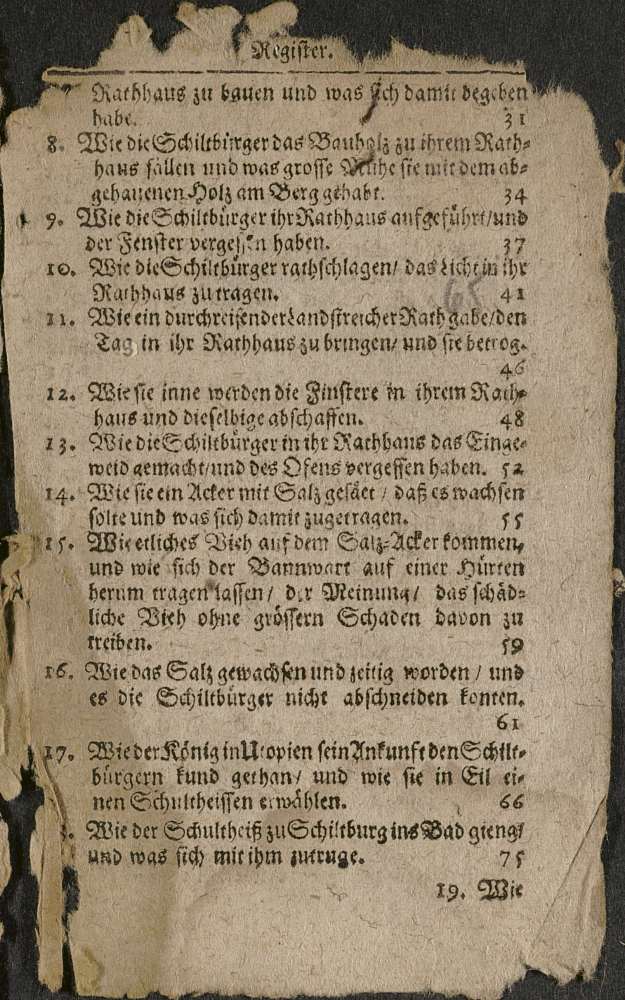 Register.
Rathhaus zu bauen und was sich damit begeben
habe. 31
8. Wie die Schiltbürger das Bauholz zu ihrem Rath-
haus fällen und was grosse Mühe sie mit dem ab-
gehauenen Holz am Berg gehabt. 34
9. Wie die Schiltbürger ihr Rathhaus aufgeführt/und
der Fenster vergessen haben. 37
10. Wie die Schiltbürger rathschlagen/ das Licht in ihr
Rathhaus zu tragen. 41
65
11. Wie ein durchreisender Landstreicher Rath gabe/den
Tag in ihr Rathhaus zu bringen/ und sie betrog.
46
12. Wie sie inne werden die Finstere in ihrem Rath-
haus und dieselbige abschaffen. 48
13. Wie die Schiltbürger in ihr Rathhaus das Einge-
weid gemacht/und des Ofens vergessen haben. 52
14. Wie sie ein Acker mit Salz gesäet / daß es wachsen
solte und was sich damit zugetragen. 55
15. Wie etliches Vieh auf dem Salz-Acker kommen,
und wie sich der Bannwart auf einer Hürten
herum tragen lassen/ der Meinung/ das schäd-
liche Vieh ohne grössern Schaden davon zu
treiben. 59
16. Wie das Salz gewachsen und zeitig worden / und
es die Schiltbürger nicht abschneiden konten.
61
17. Wie der König in Utopien sein Ankunft den Schilt-
bürgern kund gethan/ und wie sie in Eil ei-
nen Schultheissen erwählen. 66
Wie der Schultheiß zu Schiltburg ins Bad gieng/
und was sich mit ihm zutruge. 75
19. Wie